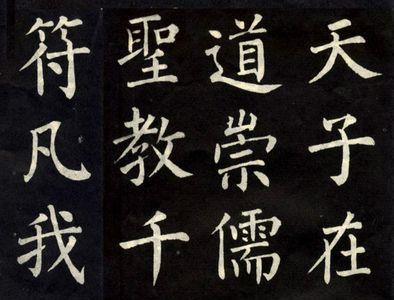 天子在
道崇儒
聖教千
符凡我